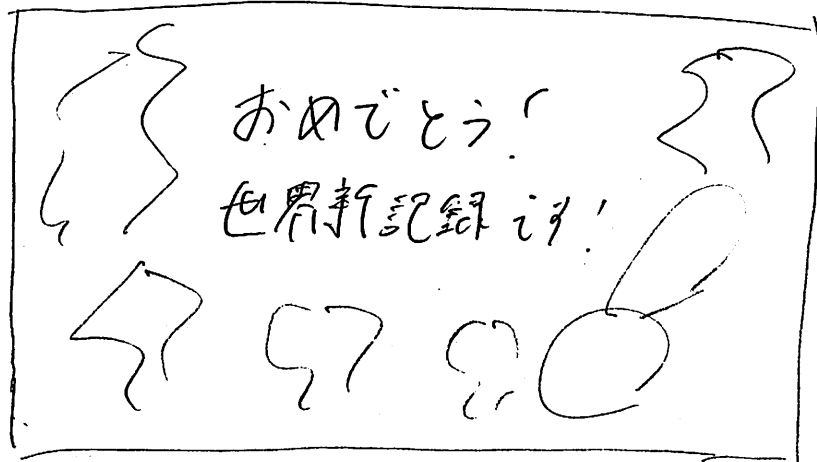 おめでとう!
世界新記録です!